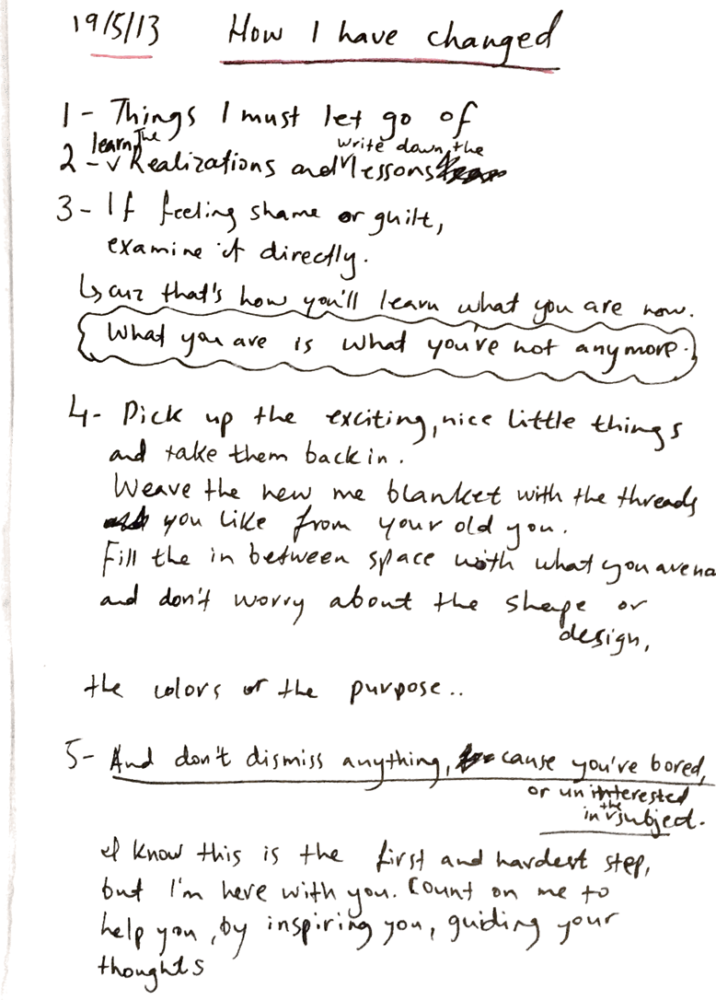 19/5/13 How I have changed
1 - Things I must let go of
2 - learn the Realizations and write down the lessons
3 - If feeling shame or guilt,
examine it directly.
↳ cuz that's how you'll learn what you are now.
What you are is what you're not anymore.
4 - Pick up the exciting, nice little things
and take them back in.
Weave the new me blanket with the threads
you like from your old you.
Fill the in between space with what you are
and don't worry about the shape or
design,
the colors or the purpose..
5 - And don't dismiss anything, cause you've bored,
or uninterested
in the subject.
I know this is the first and hardest step,
but I'm here with you. Count on me to
help you, by inspiring you, guiding your
thoughts